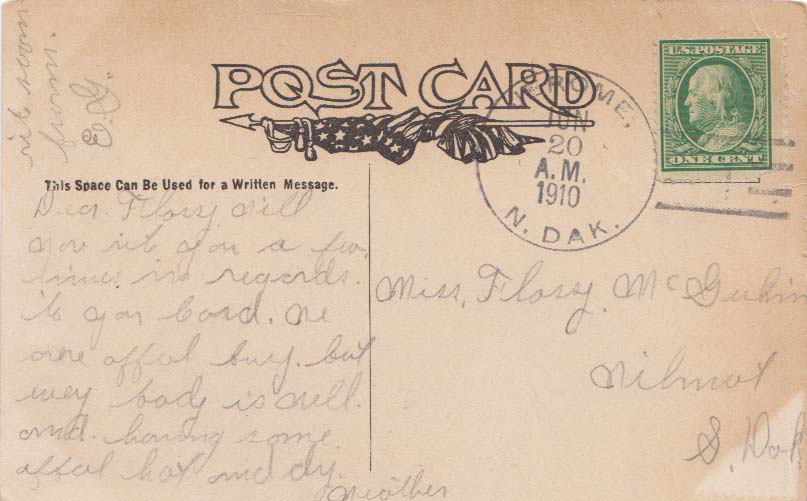 POST CARD
U.S. POSTAGE
ONE CENT
JUN
20
A.M.
1910
N. DAK.
This Space Can Be Used for a Written Message.
Dear Flossy Will
now rit you a few
lines in regards.
to your Card. We
are affel busy. but
evey body is well.
and. having some
affel hot and dry
Weather
Miss, Flossy. Mc
Wilmot
S. Dak